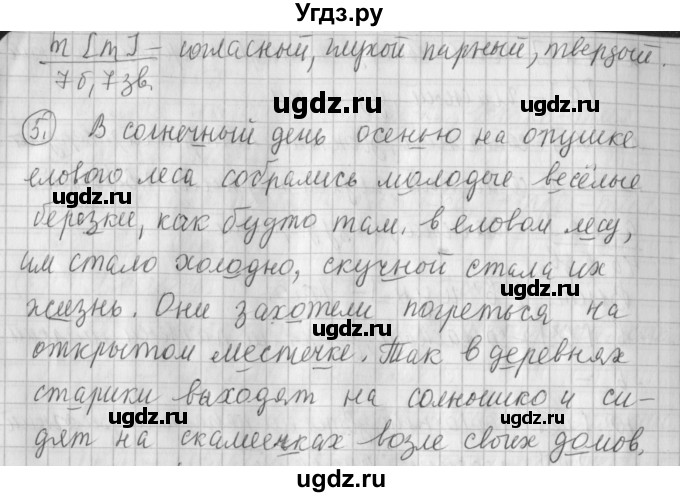 Угдз.ру
т [т] – согласный, глухой парный, твердый.
7б, 7 зв.
ugdz.ru ugdz.ru
5. В солнечный день осенью на опушке
елового леса собрались молодые весёлые
ugdz.ru ugdz.ru
березки, как будто там, в еловом лесу,
им стало холодно, скучной стала их
жизнь. Они захотели погреться на
ugdz.ru
открытом местечке. Так в деревнях
старики выходят на солнышко и си-
ugdz.ru ugdz.ru
дят на скамеенках возле своих домов.
ugdz.ru